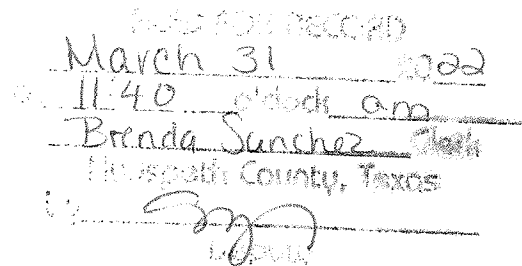 FILED FOR RECORD
March 31 2022
11:40 o'clock am
Brenda Sanchez Clerk
Hudspeth County, Texas
Deputy